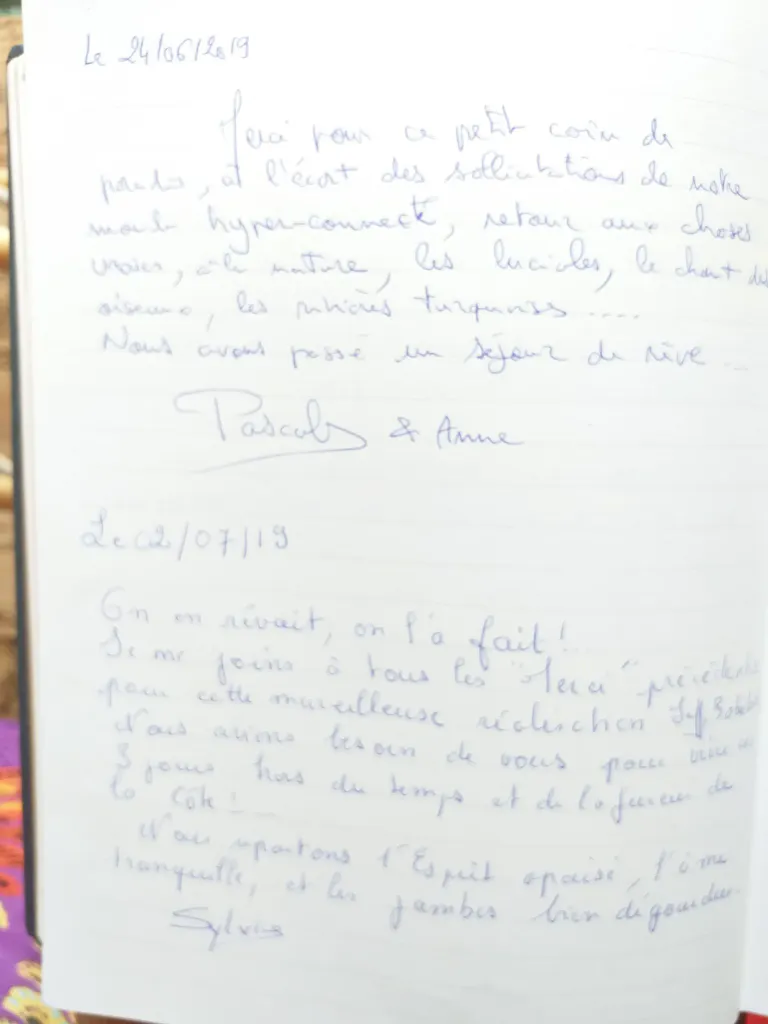 Le 24/06/2019
Merci pour ce petit coin de
paradis, à l'écart des sollicitations de notre
monde hyper-connecté, retour aux choses
vraies, à la nature, les lucioles, le chant des
oiseaux, les rivières turquoises ....
Nous avons passé un séjour de rêve ...
Pascal & Anne
Le 02/07/19
On en rêvait, on l'a fait!
Je me joins à tous les "Merci" précédents
pour cette merveilleuse
Nous avions besoin de vous pour vivre
3 jours hors du temps et de la fureur de
la Côte!...
Nous repartons l'Esprit apaisé, l'âme
tranquille, et les jambes bien dégourdies.
Sylvie